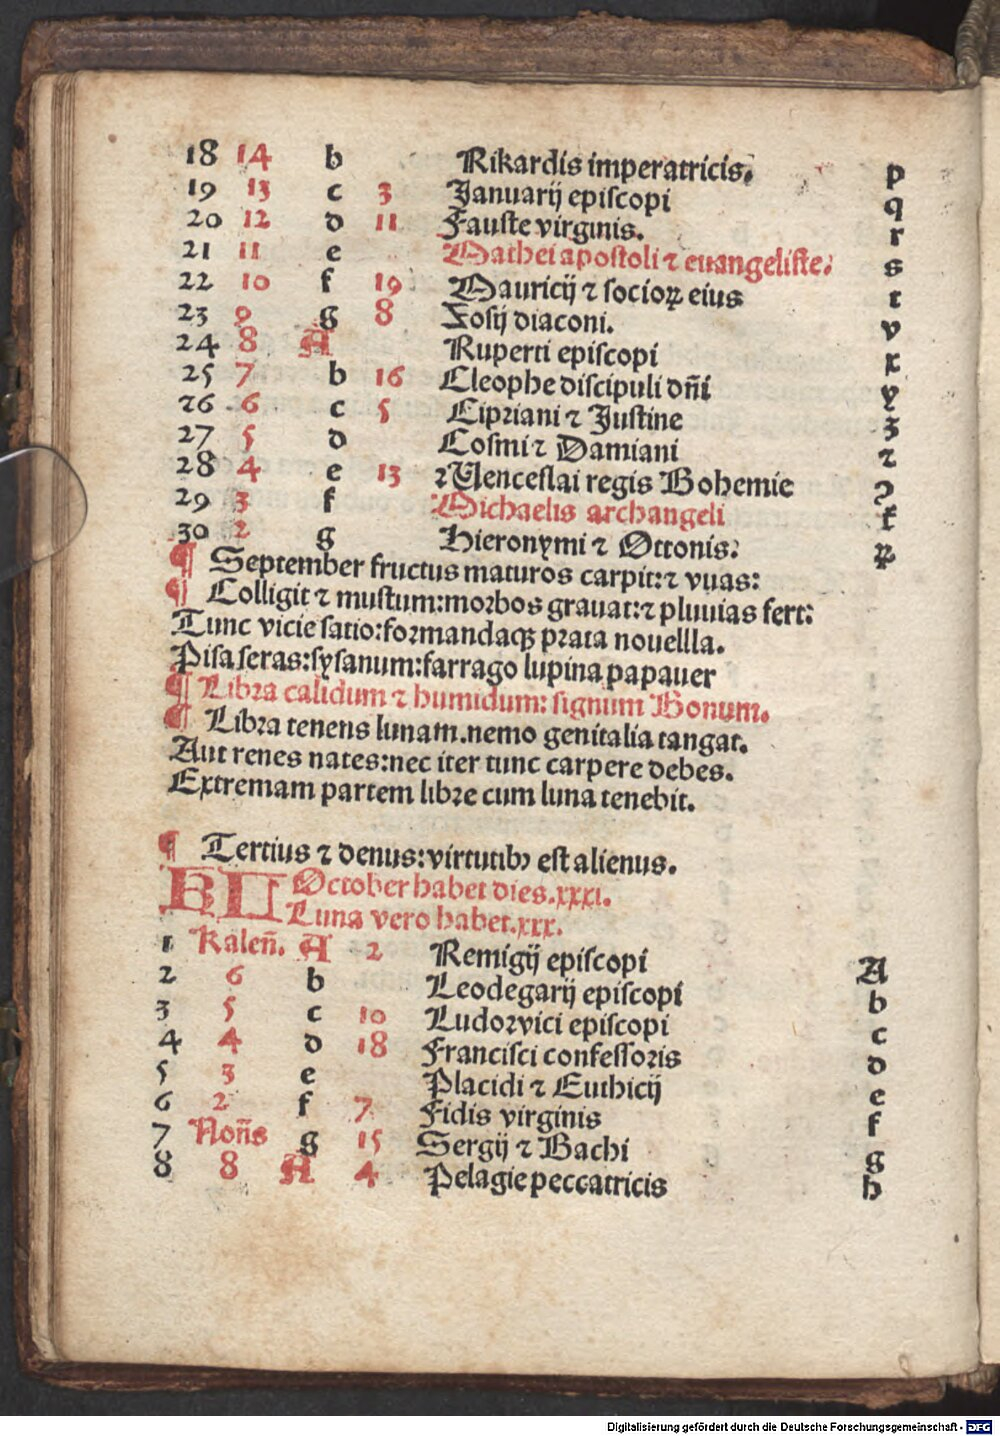 18 14 b Rikardis imperatricis. p
19 13 c 3 Januarij episcopi q
20 12 d 11 Fauste virginis. r
21 11 e Mathei apostoli ⁊ euangeliste. s
22 10 f 19 Mauricij ⁊ socioꝝ eius t
23 9 g 8 Sosij diaconi. v
24 8 A Ruperti episcopi x
25 7 b 16 Cleophe discipuli dñi y
26 6 c 5 Cipriani ⁊ Justine z
27 5 d Cosmi ⁊ Damiani ⁊
28 4 e 13 Wenceslai regis Bohemie ꝯ
29 3 f Michaelis archangeli
30 2 g Hieronymi ⁊ Ottonis. ꝝ
¶ September fructus maturos carpit: ⁊ vuas:
¶ Colligit ⁊ mustum: morbos grauat: ⁊ pluuias fert:
Tunc vicie satio: formandaqꝫ prata nouellla.
Pisa seras: sysanum: farrago lupina papauer
¶ Libra calidum ⁊ humidum: signum Bonum.
¶ Libra tenens lunam. nemo genitalia tangat.
Aut renes nates: nec iter tunc carpere debes.
Extremam partem libre cum luna tenebit.
¶ Tertius ⁊ denus: virtutibꝫ est alienus.
KL October habet dies. xxxi.
Luna vero habet. xxx.
1 Kaleñ. A 2 Remigij episcopi A
2 6 b Leodegarij episcopi b
3 5 c 10 Ludorvici episcopi c
4 4 d 18 Francisci confessoris d
5 3 e Placidi ⁊ Euthicij e
6 2 f 7 Fidis virginis f
7 Noñs g 15 Sergij ⁊ Bachi g
8 8 A 4 Pelagie peccatricis h
Digitalisierung gefördert durch die Deutsche Forschungsgemeinschaft - DFG